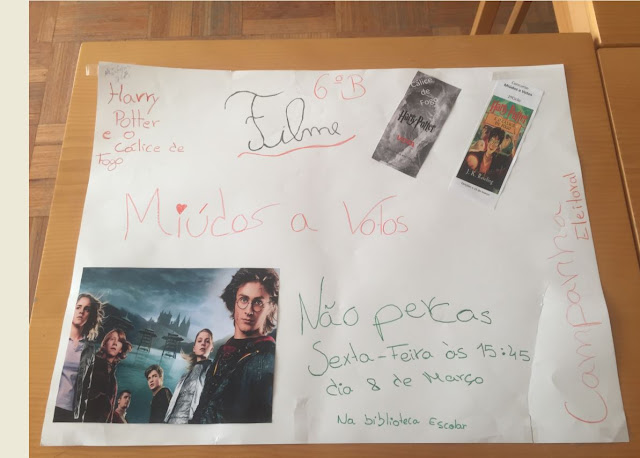 Harry
Potter
e o
Cálice de
Fogo
6ºB
Filme
Cálice
de
Fogo
Harry Potter
Miúdos a Votos
Harry Potter
J. K. Rowling
Miúdos a Votos
Campanha
Eleitoral
Não percas
Sexta-Feira às 15:45
dia 8 de Março
Na biblioteca Escolar